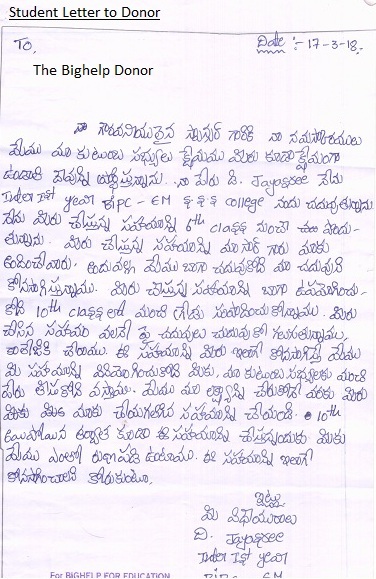 Student Letter to Donor
TO, Date :- 17-3-18.
The Bighelp Donor
నా గౌరవనీయులైన స్పాన్సర్ గారికి నా నమస్కారములు
మేము మా కుటుంబ సభ్యులు క్షేమము మీరు కూడా క్షేమంగా
ఉండాలి దేవున్ని నా పేరు డి. Jayasree నేను
Inter Ist year BiPC - EM college నందు చదువుతున్నాను
నేను మీరు చేస్తున్న సహాయాన్ని 6th class నుంచి పొందు-
తున్నాను. మీరు చేస్తున్న సహాయాన్ని మా సార్ గారు మాకు
అందించేవారు. అందువల్ల మేము బాగా చదువుకొని మా చదువుని
కొనసాగిస్తున్నాము. మీరు చేస్తున్న సహాయాన్ని బాగా ఉపయోగించు-
కొని 10th class లో మంచి గ్రేడు సంపాదించుకొన్నాము. మీరు
చేసిన సహాయం వలనే పై చదువులు చదువుకో గలుగుతున్నాము,
కాలేజీకి చేరాము. ఈ సహాయాన్ని మీరు ఇలాగే కొనసాగిస్తే మేము
మీ సహాయాన్ని వినియోగించుకొని మీకు, మా కుటుంబ సభ్యులకు మంచి
పేరు తీసుకొని వస్తాము. మేము మా లక్ష్యాన్ని చేరుకొనే వరకు మీరు
మీకు మాకు చేయగలిగిన సహాయాన్ని చేయండి. 10th
అయిపోయిన తర్వాత కూడా ఈ సహాయాన్ని చేస్తున్నందుకు మీకు
మేము ఎంతో రుణపడి ఉంటాము. ఈ సహాయాన్ని ఇలాగే
కొనసాగించాలని కోరుకుంటూ,
ఇట్లు
మీ విధేయురాలు
D. Jayasree
Inter Ist year
BiPC - EM
For BIGHELP FOR EDUCATION